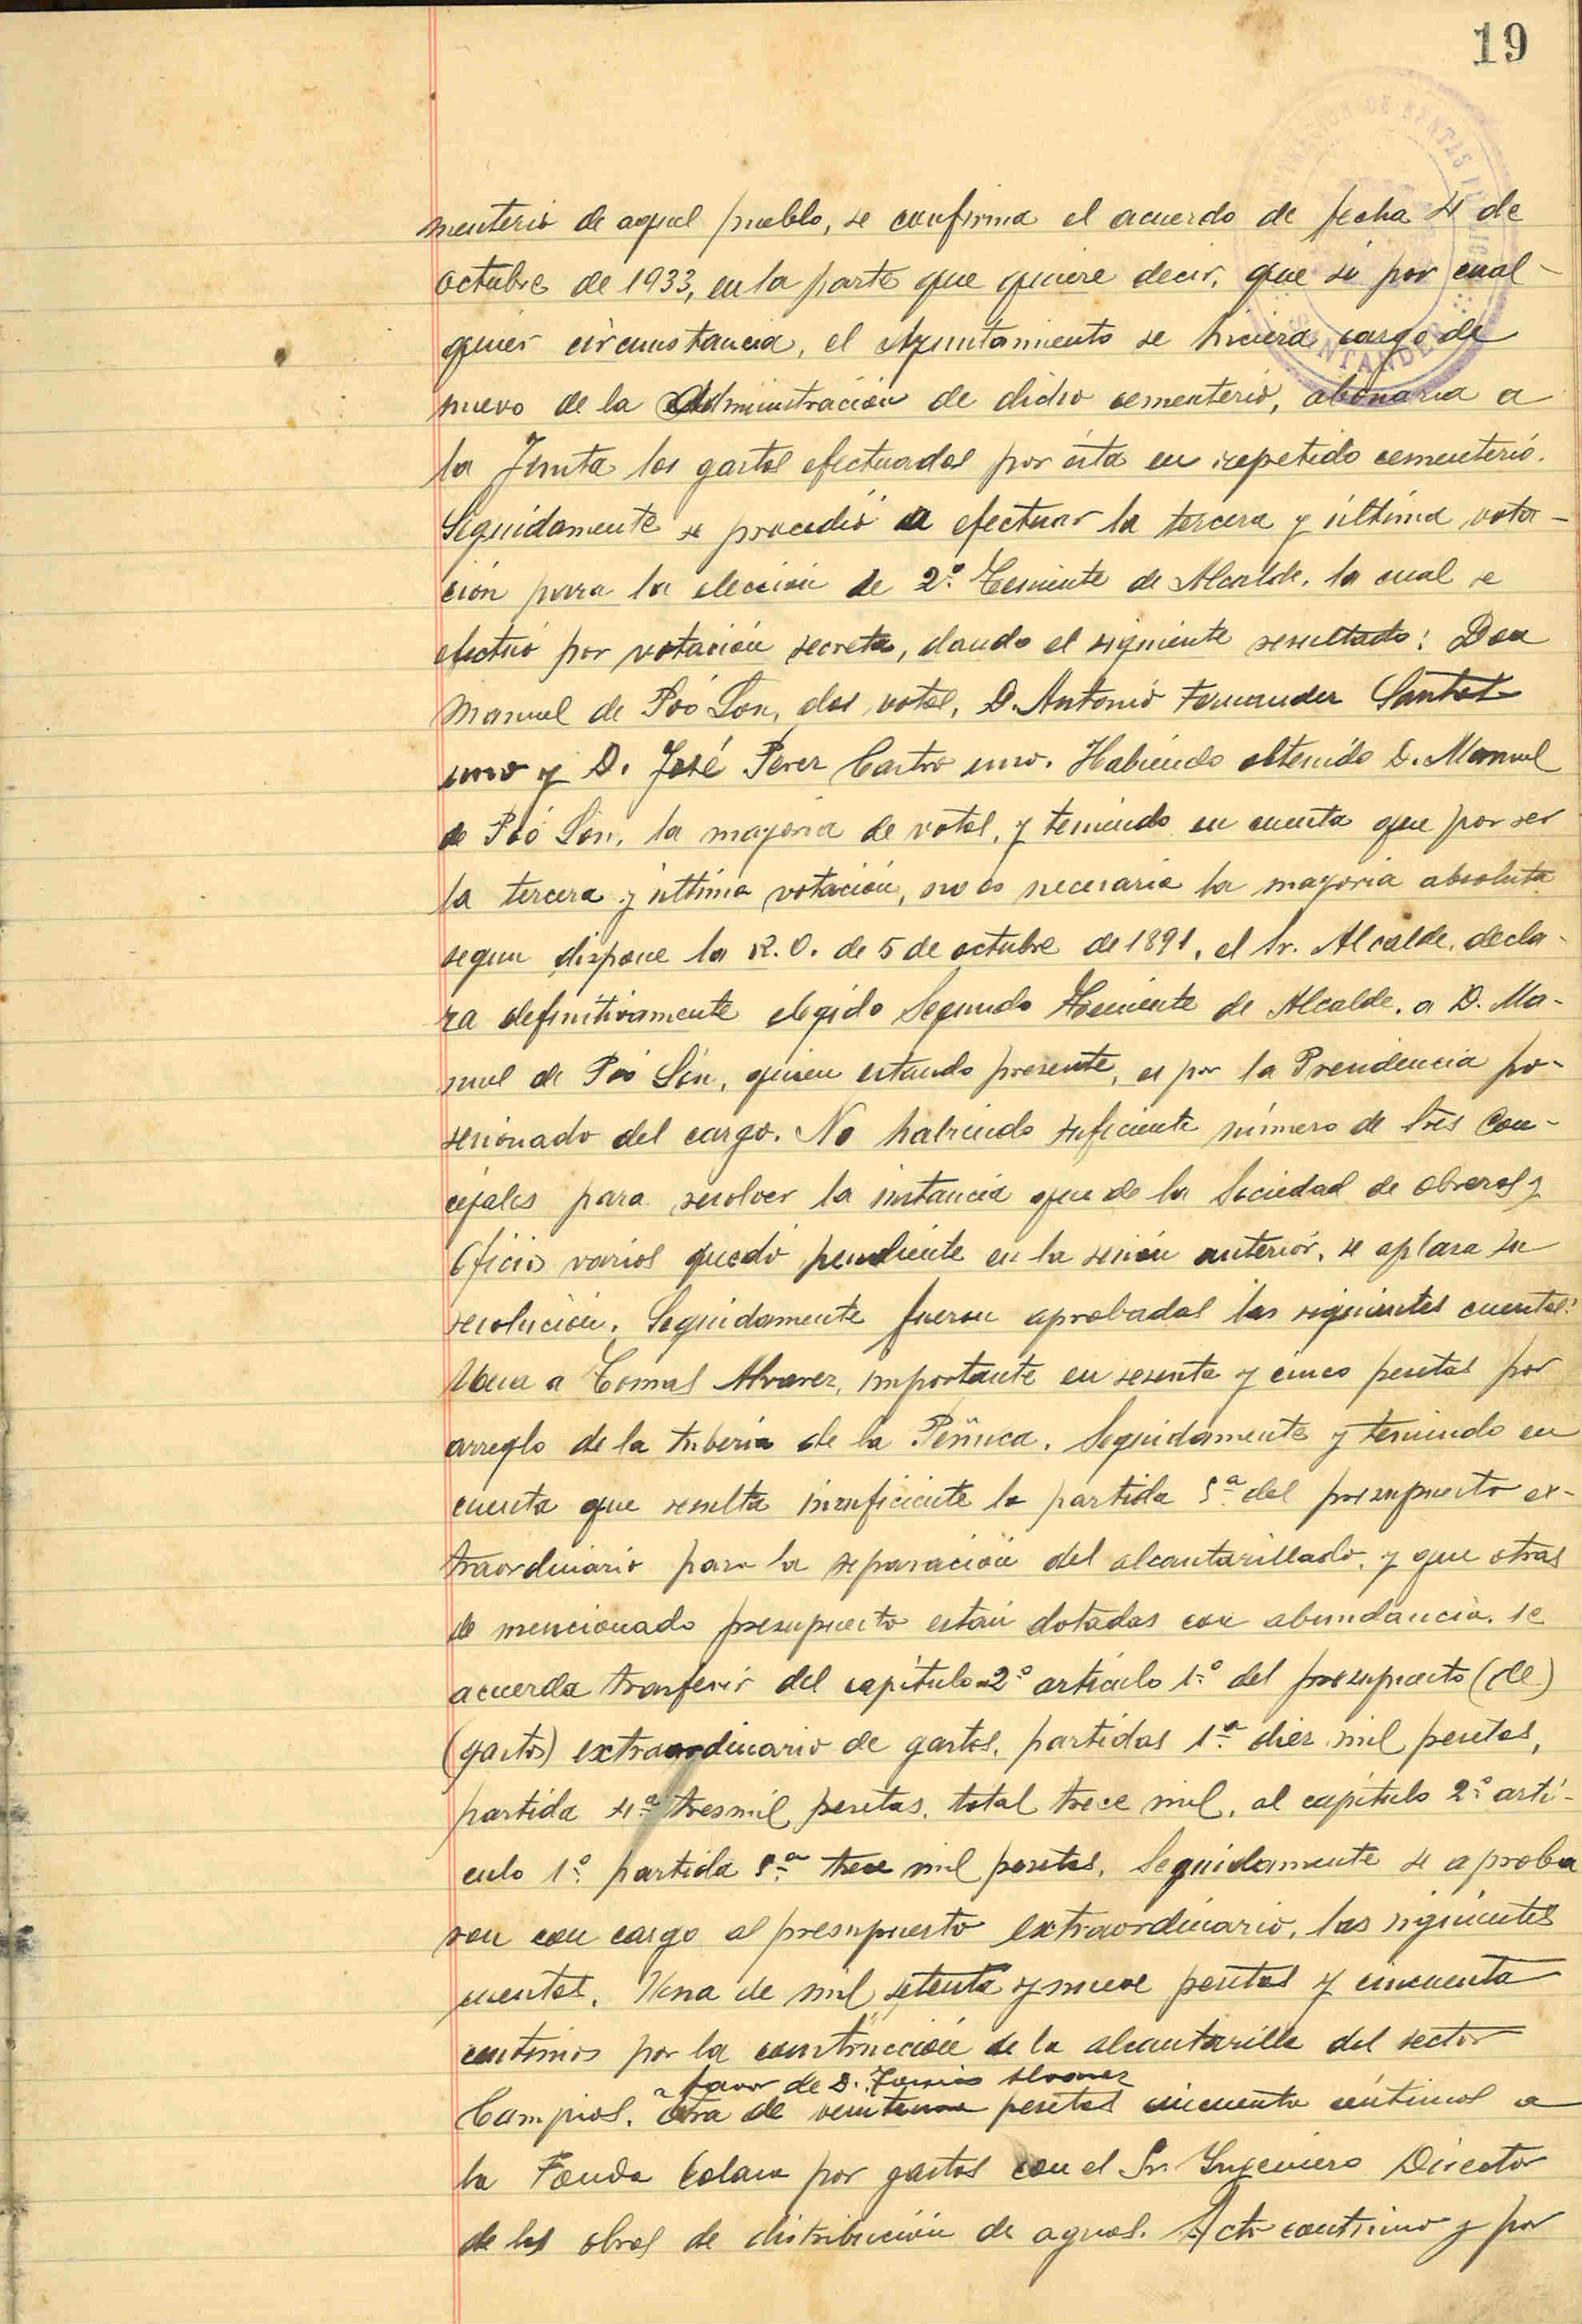 19
menterio de aquel pueblo, se confirma el acuerdo de fecha 4 de
octubre de 1933, en la parte que quiere decir, que si por cual-
quier circunstancia, el Ayuntamiento se hiciera cargo de
nuevo de la Administración de dicho cementerio, abonaria a
la Junta los gastos efectuados por ésta en repetido cementerio.
Seguidamente se procedió a efectuar la tercera y última vota-
ción para la elección de 2º Teniente de Alcalde, la cual se
efectuó por votación secreta, dando el siguiente resultado: Don
Manuel de Póo Son, dos votos, D. Antonio Fernandez Santos
uno y D. José Perez Castro uno. Habiendo obtenido D. Manuel
de Póo Son, la mayoria de votos, y teniendo en cuenta que por ser
la tercera y última votación, no es necesaria la mayoria absoluta
segun dispone la R.O. de 5 de octubre de 1891, el Sr. Alcalde, decla-
ra definitivamente elegido Segundo Teniente de Alcalde, a D. Ma-
nuel de Póo Son, quien estando presente, es por la Presidencia po-
sesionado del cargo. No habiendo suficiente número de tres Con-
cejales para resolver la instancia que de la Sociedad de obreros y
Oficios varios quedó pendiente en la sesión anterior, se aplaza su
resolución. Seguidamente fueron aprobadas las siguientes cuentas:
Una a Tomas Alvarez, importante en sesenta y cinco pesetas por
arreglo de la tuberia de la Peñuca. Seguidamente y teniendo en
cuenta que resulta insuficiente la partida 5ª del presupuesto ex-
traordinario para la reparación del alcantarillado, y que otras
de mencionado presupuesto están dotadas con abundancia, se
acuerda transferir del capítulo 2º artículo 1º del presupuesto (de)
(gastos) extraordinario de gastos, partidas 1ª diez mil pesetas,
partida 4ª tres mil pesetas, total trece mil, al capítulo 2º artí-
culo 1º partida 5ª trece mil pesetas. Seguidamente se aproba
ron con cargo al presupuesto extraordinario, las siguientes
cuentas. Una de mil setenta y nueve pesetas y cincuenta
centimos por la construcción de la alcantarilla del sector
a favor de D. Alvarez
Campios. otra de pesetas cincuenta céntimos a
la Fonda Colasa por gastos con el Sr. Ingeniero Director
de las obras de distribución de aguas. Acto continuo y por
SANTANDER